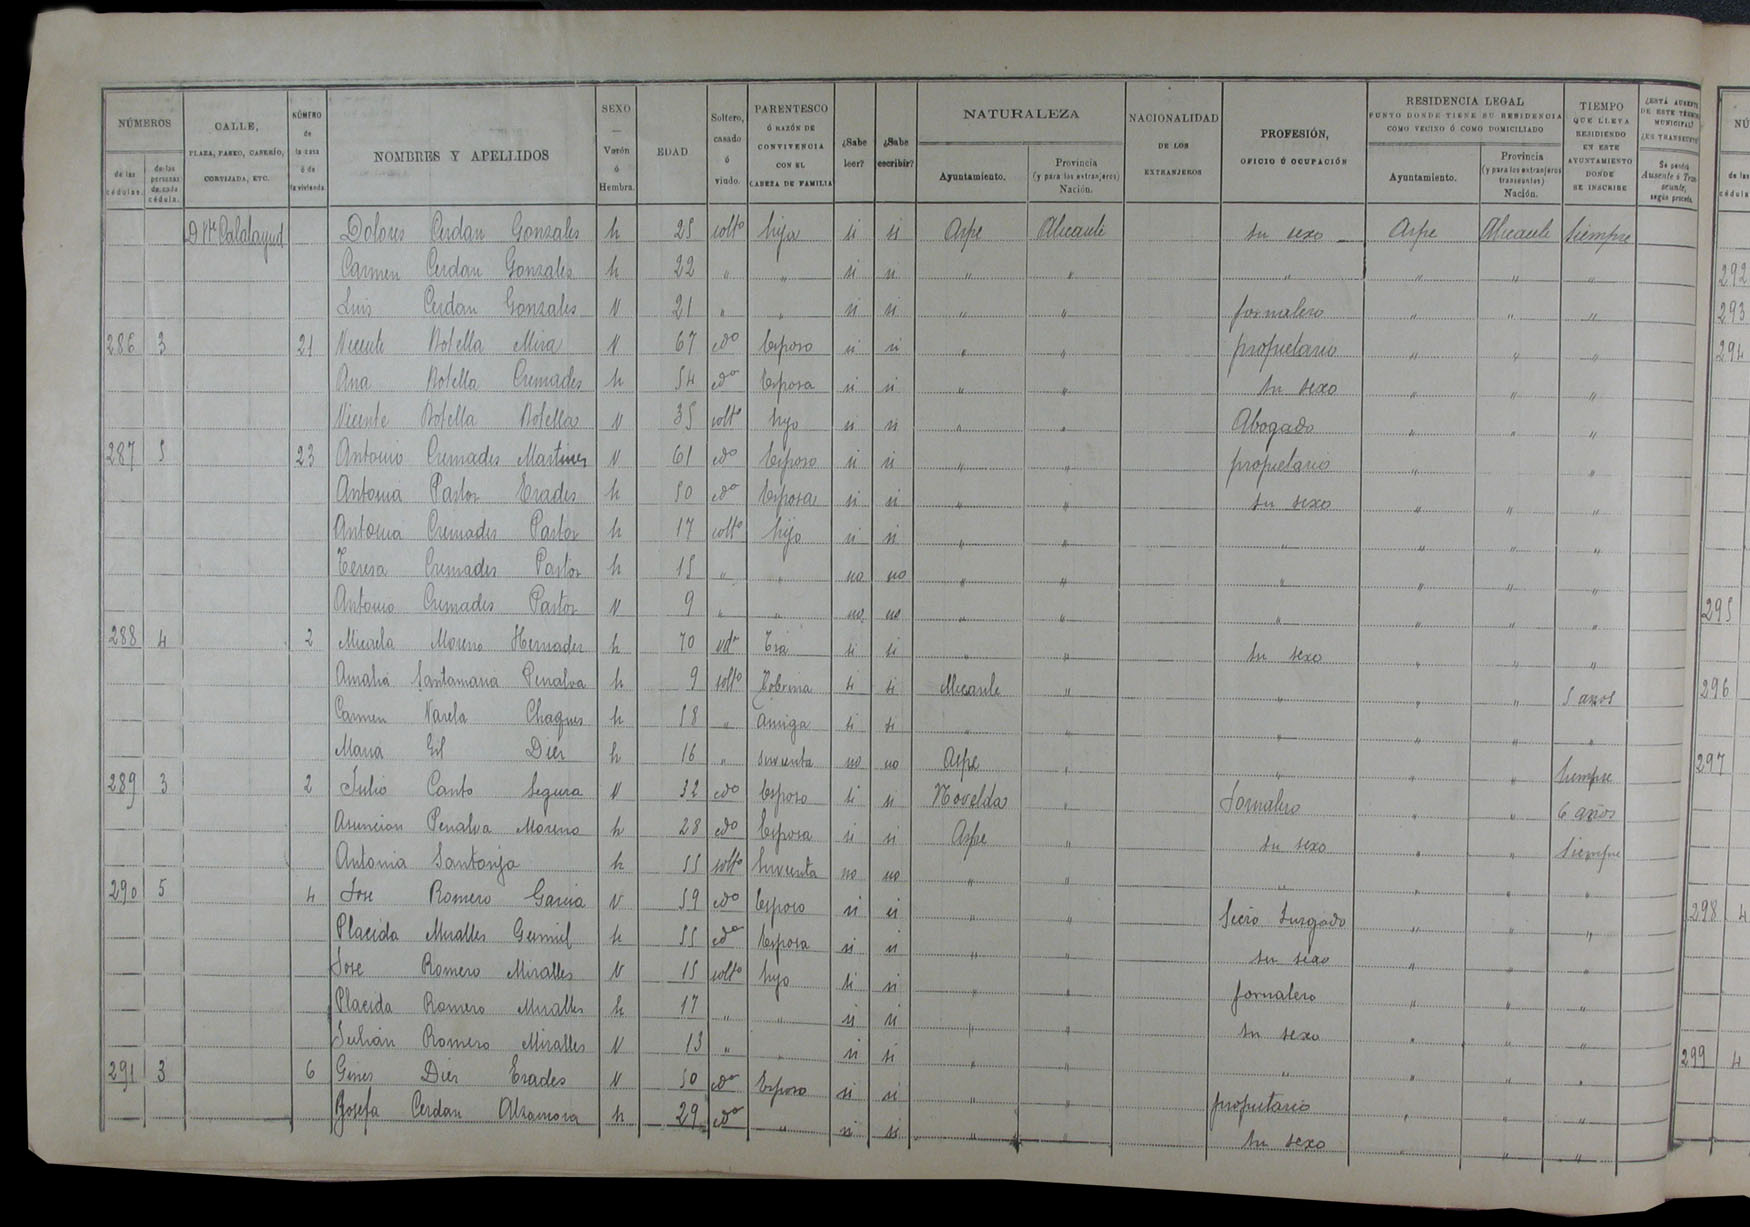 NÚMEROS
de las cédulas.
de las personas de cada cédula.
CALLE,
PLAZA, PASEO, CASERÍO,
CORTIJADA, ETC.
NÚMERO de la casa ó de la vivienda.
NOMBRES Y APELLIDOS
SEXO — Varón ó Hembra.
EDAD
Soltero, casado ó viudo.
PARENTESCO
Ó RAZÓN DE CONVIVENCIA CON EL CABEZA DE FAMILIA
¿Sabe leer?
¿Sabe escribir?
NATURALEZA
Ayuntamiento.
Provincia (y para los extranjeros) Nación.
NACIONALIDAD
DE LOS EXTRANJEROS
PROFESIÓN,
OFICIO Ó OCUPACIÓN
RESIDENCIA LEGAL
PUNTO DONDE TIENE SU RESIDENCIA COMO VECINO Ó COMO DOMICILIADO
Ayuntamiento.
Provincia (y para los extranjeros transeuntes) Nación.
TIEMPO
QUE LLEVA RESIDIENDO EN ESTE AYUNTAMIENTO DONDE SE INSCRIBE
¿ESTÁ AUSENTE DE ESTE TÉRMINO MUNICIPAL?
¿ES TRANSEUNTE?
Se pondrá Ausente ó Transeunte, según proceda.
NÚ
de las cédulas
Calatayud Dolores Cerdan Gonzales h 25 solto hija si si Aspe Alicante su sexo Aspe Alicante Siempre
Carmen Cerdan Gonzales h 22 " " si si " " " " " "
Luis Cerdan Gonzales V 21 " " si si " " jornalero " " "
286 3 21 Vicente Botella Mira V 67 cdo Esposo si si " " propietario " " "
Ana Botella Cremades h 54 cdo Esposa si si " " su sexo " " "
Vicente Botella Botella V 35 solto hijo si si " " Abogado " " "
287 5 23 Antonio Cremades Martines V 61 cdo Esposo si si " " propietario " "
Antonia Pastor Erades h 50 cdo Esposa si si " " su sexo " " "
Antonia Cremades Pastor h 17 solto hija si si " " " " " "
Teresa Cremades Pastor h 15 " " no no " " " " " "
Antonio Cremades Pastor V 9 " " no no " " " " " "
288 4 2 Micaela Moreno Hernades h 70 vda Tia si si " " su sexo " " "
Amalia Santamaria Penalva h 9 solto Sobrina si si Alicante " " " " 5 anos
Carmen Varela Chaques h 58 " Amiga si si " " " " " "
Maria Gil Dies h 16 " sirvienta no no Aspe " " " " Siempre
289 3 2 Julio Canto Segura V 32 cdo Esposo si si Novelda " Jornalero " " 6 años
Asuncion Penalva Moreno h 28 cdo Esposa si si Aspe " su sexo " " Siempre
Antonia Santonja h 55 solto Sirvienta no no " " " " " "
290 5 4 Jose Romero Garcia V 59 cdo Esposo si si " " Secro Jusgado " " "
Placida Miralles Gumiel h 55 cdo Esposa si si " " su sexo " " "
Jose Romero Miralles V 15 solto hijo si si " " jornalero " " "
Placida Romero Miralles h 17 " " si si " " su sexo " " "
Julian Romero Miralles V 13 " " si si " " " " " "
291 3 6 Gines Dies Erades V 50 cdo Esposo si si " " propietario " " "
Josefa Cerdan Alzamora h 29 cdo " si si " " su sexo " " "
292
293
294
295
296
297
298 4
299 4